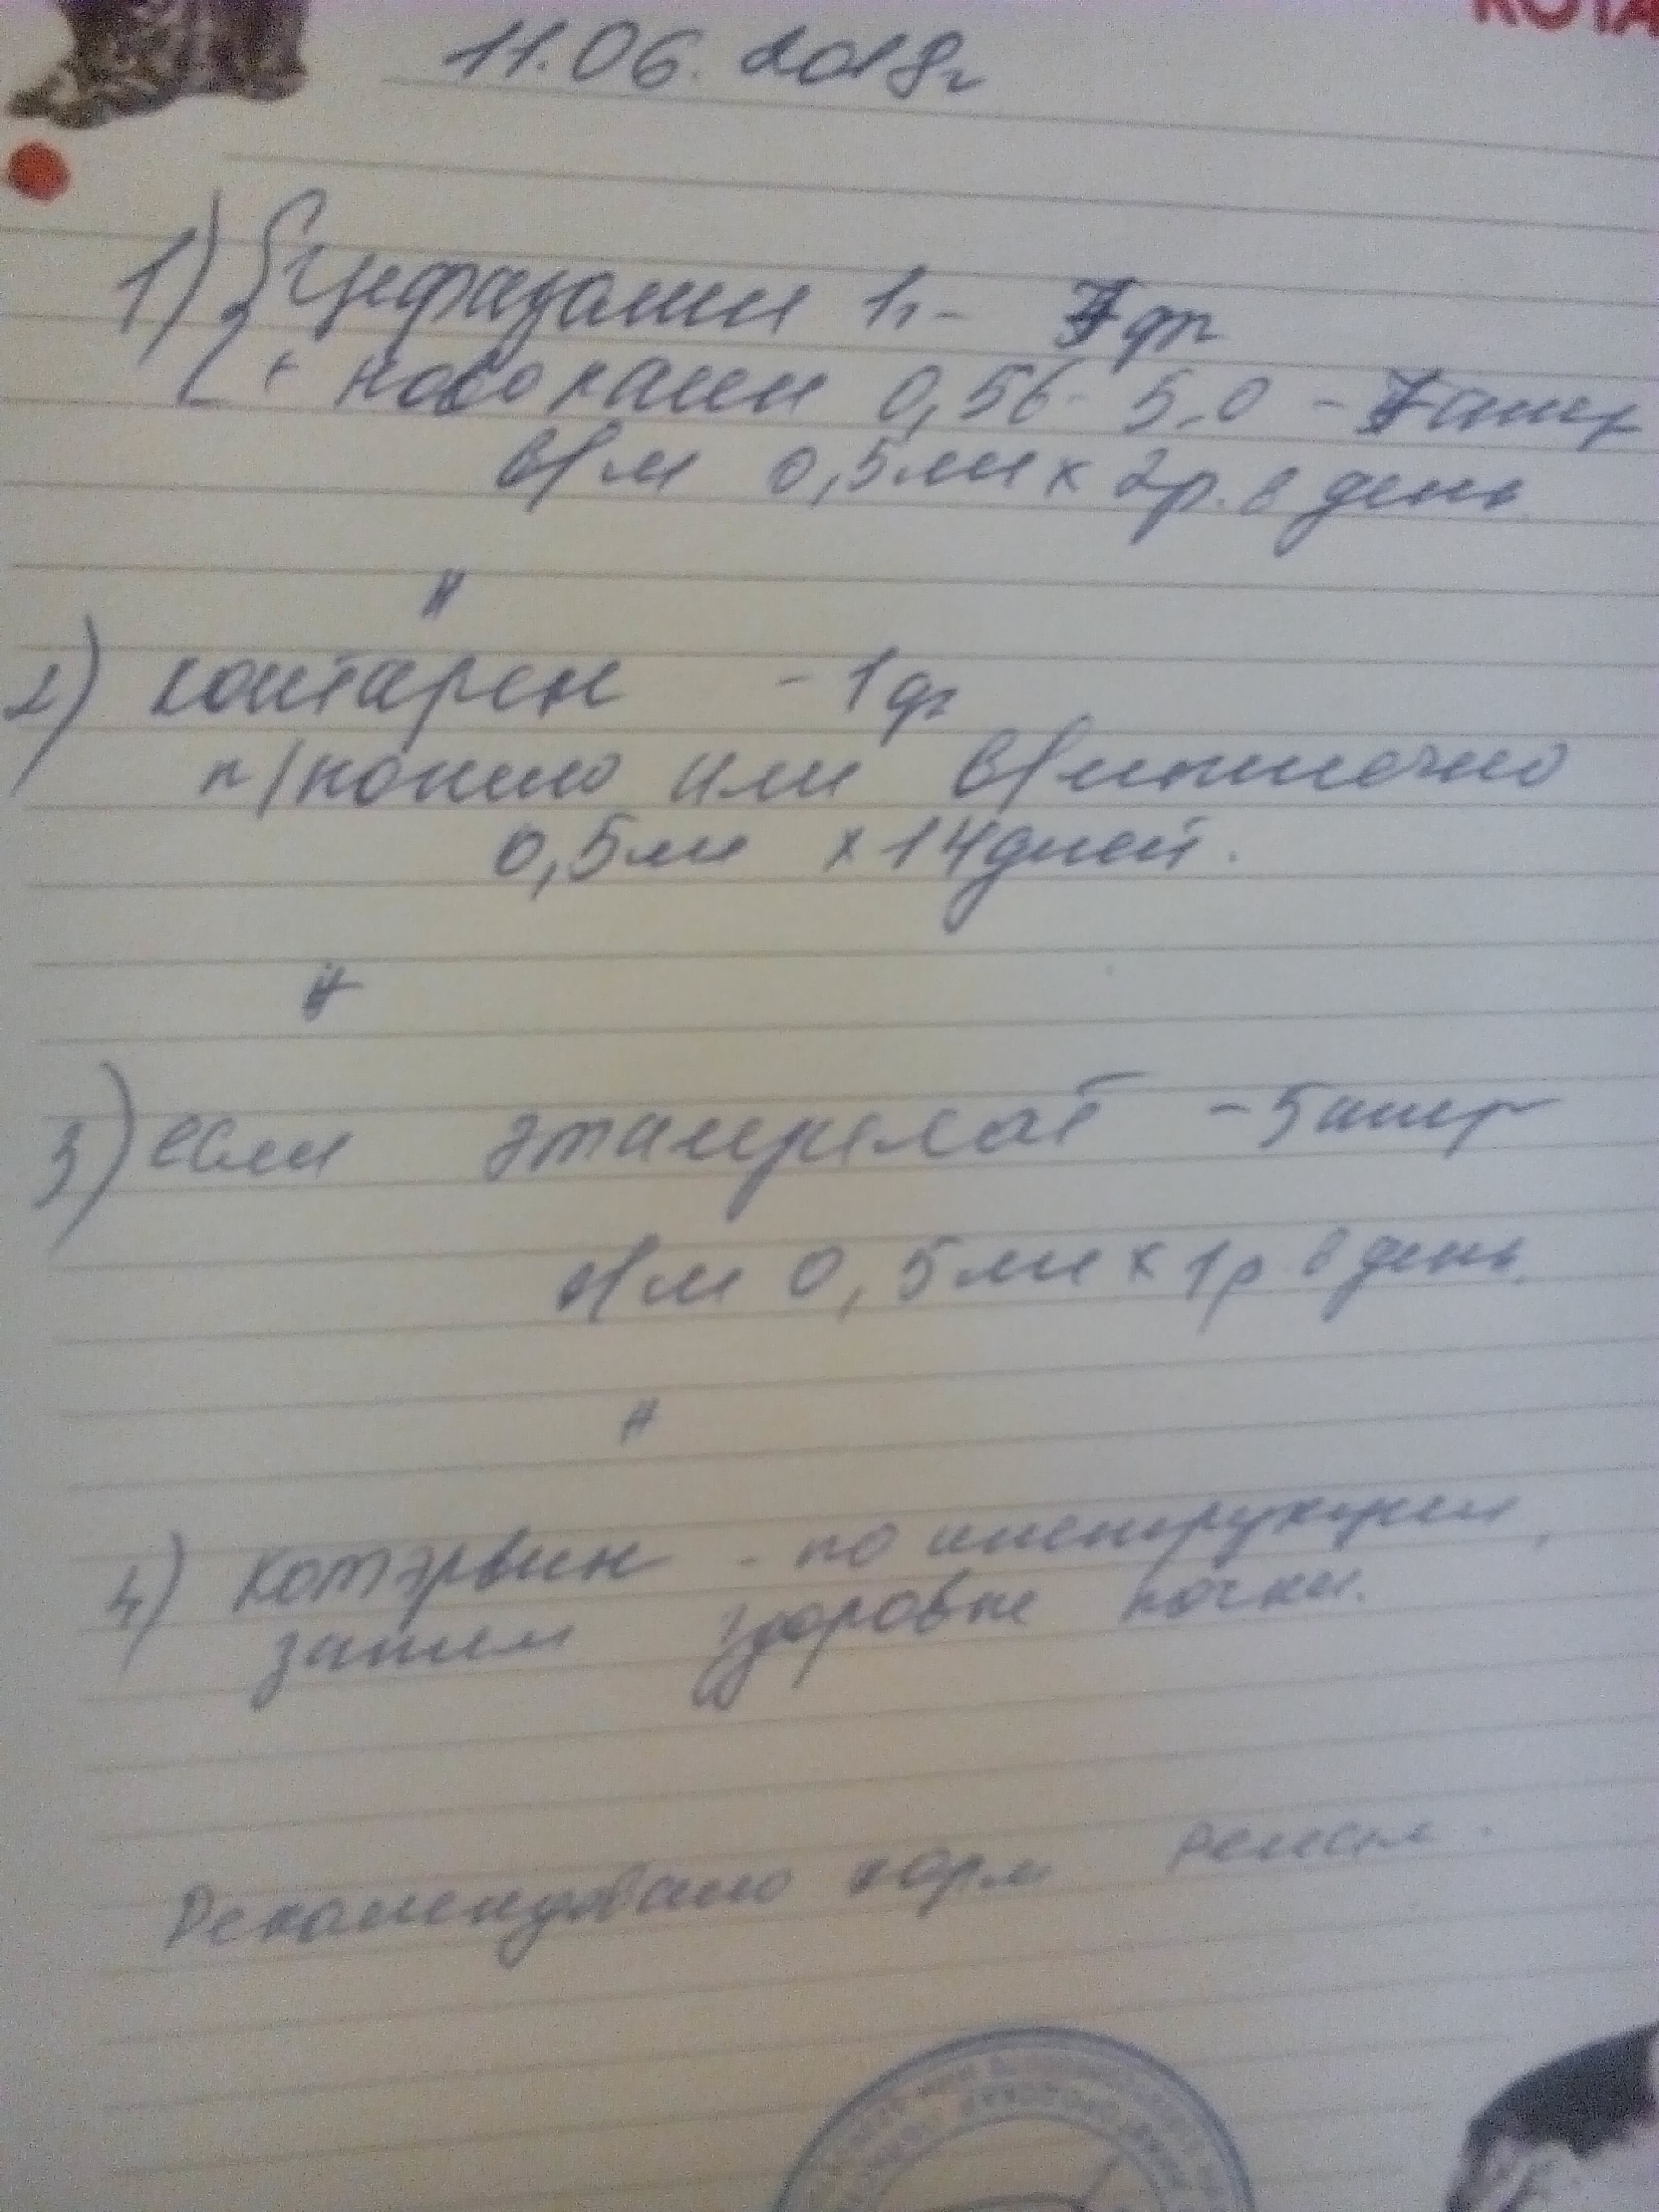 КОТА
11.06.2018г
1) { Цефазолин 1г - 7 фл
+ новокаин 0,5% 5,0 - 7 ампул
в/м 0,5мл х 2р. в день
2) кантарен - 1 фл
п/кожно или в/мышечно
0,5мл х 14 дней.
3) если этамзилат - 5 ампул
в/м 0,5мл х 1р в день
4) котэрвин - по инструкции,
затем здоровые почки.
Рекомендовано корм Ренал.